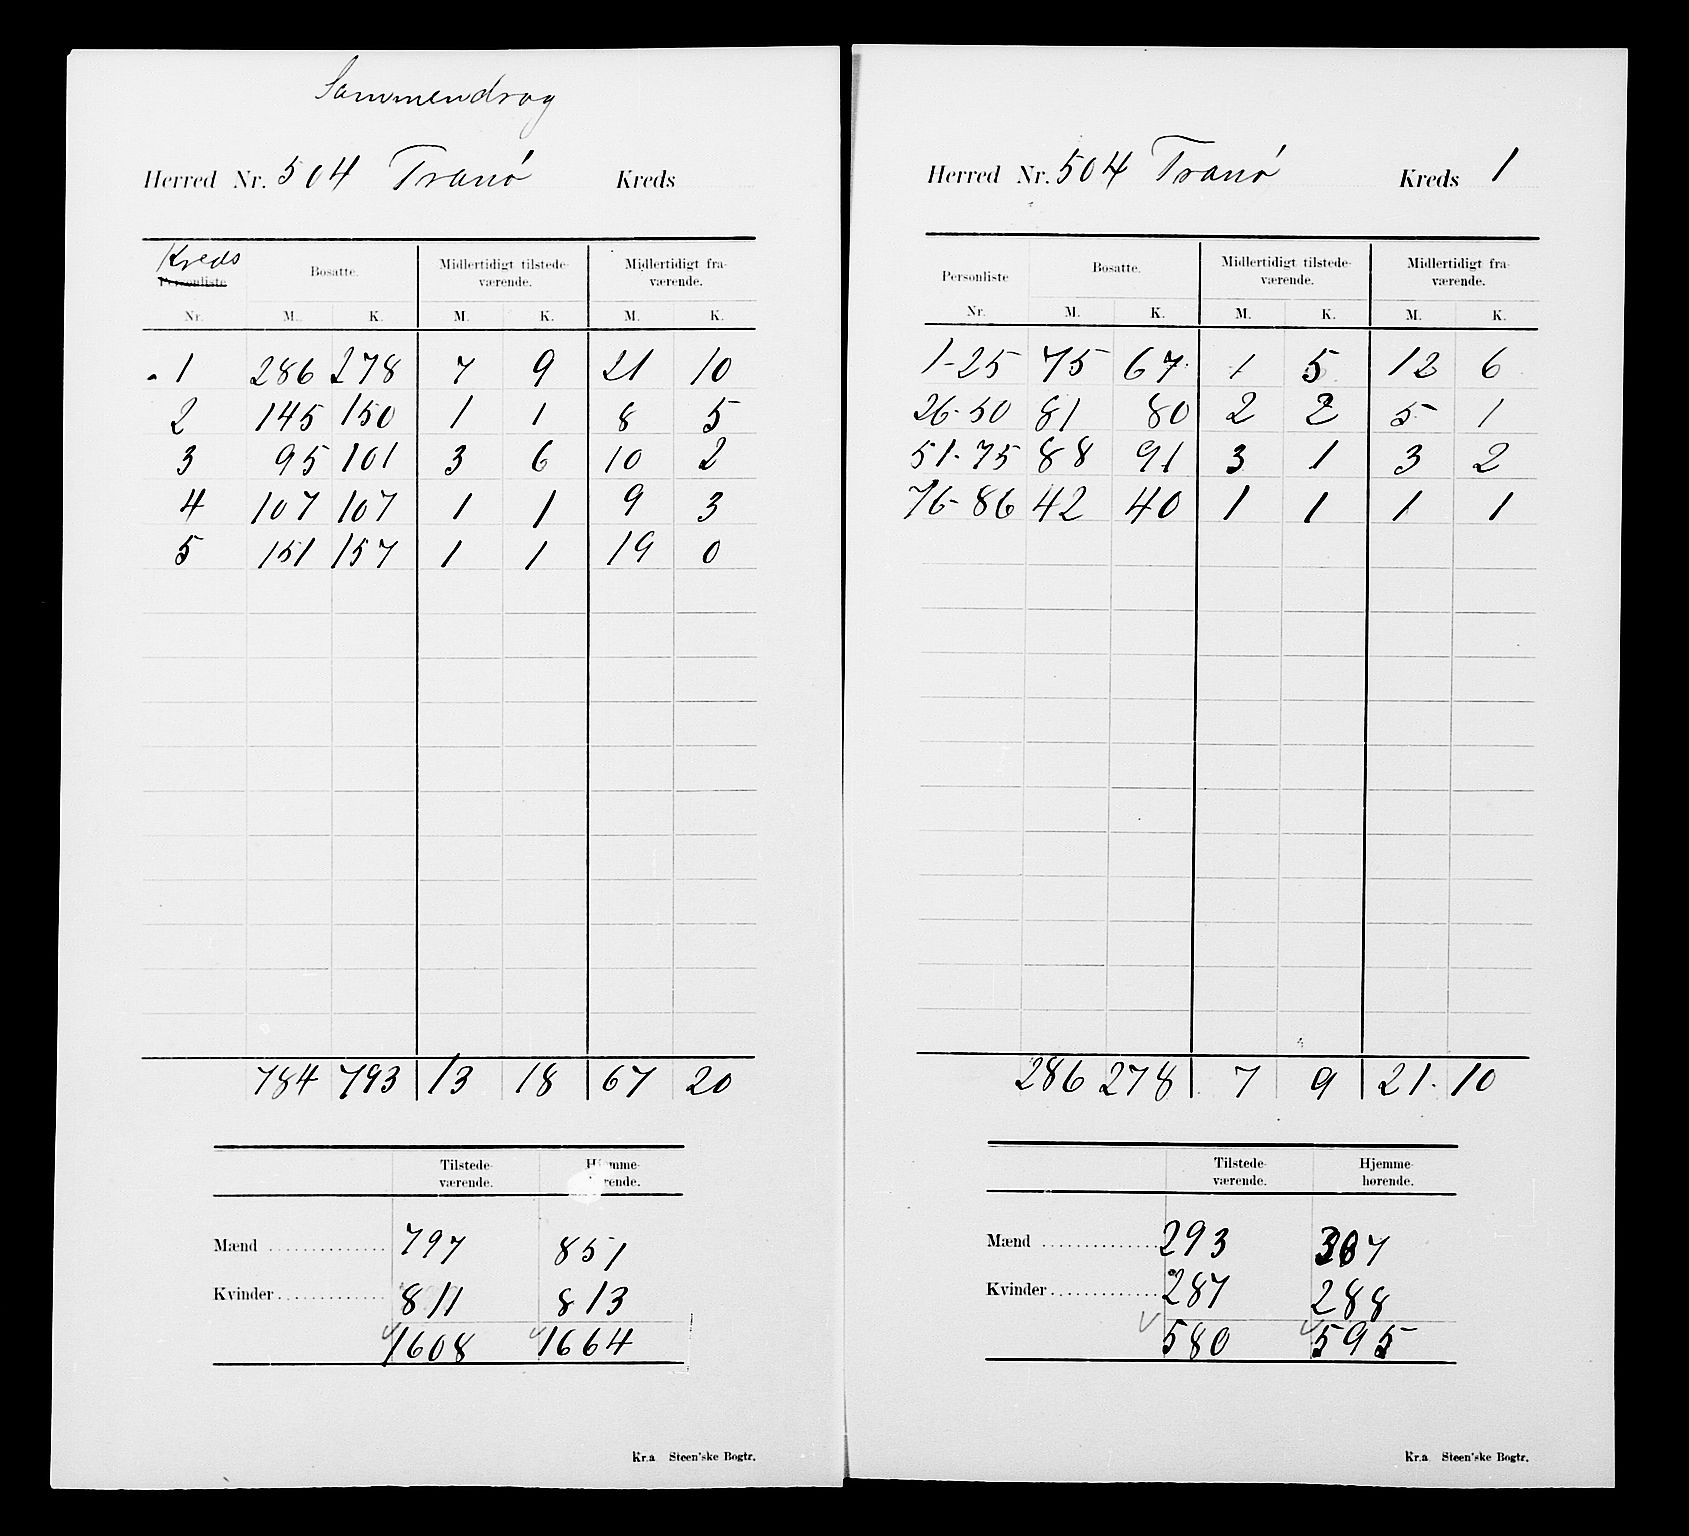 Sammendrag
Herred Nr. 504 Tranö Kreds
Kreds
Personliste Bosatte. Midlertidigt tilstede- Midlertidigt fra-
værende. værende.
Nr. M. K. M. K. M. K.
1 286 278 7 9 21 10
2 145 150 1 1 8 5
3 95 101 3 6 10 2
4 107 107 1 1 9 3
5 151 157 1 1 19 0
784 793 13 18 67 20
Tilstede- Hjemme-
værende. hørende.
Mænd 797 851
Kvinder 811 813
1608 1664
Kr.a Steen'ske Bogtr.
Herred Nr. 504 Tranö Kreds 1
Personliste Bosatte. Midlertidigt tilstede- Midlertidigt fra-
værende. værende.
Nr. M. K. M. K. M. K.
1-25 75 67 1 5 12 6
26-50 81 80 2 2 5 1
51-75 88 91 3 1 3 2
76-86 42 40 1 1 1 1
286 278 7 9 21 10
Tilstede- Hjemme-
værende. hørende.
Mænd 293 307
Kvinder 287 288
580 595
Kr.a Steen'ske Bogtr.